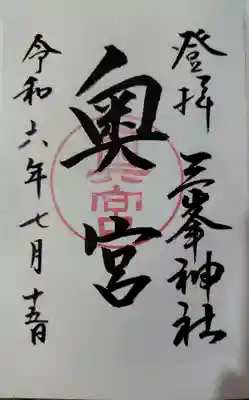 登拝 三峯神社
奥宮
令和六年七月十五日